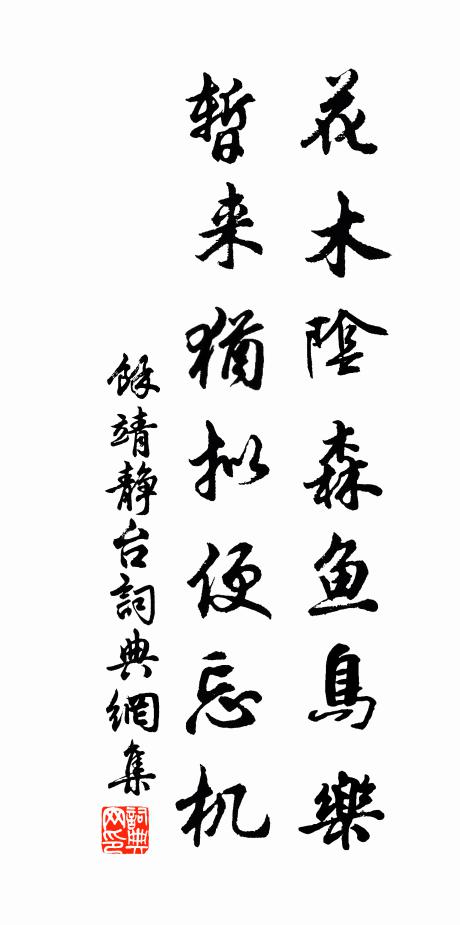 花木陰森鱼鳥樂
暫来猶拟便忘机
餘靖静台詞典網集
詞典网印